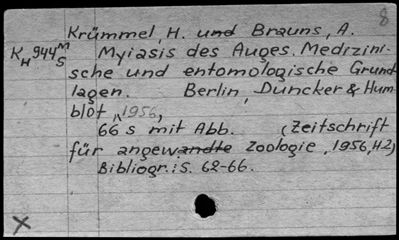 8
Krümmel, H. und Brauns, A.
KH 944 M/S Myiasis des Auges. Medizini-
sche und entomologische Grund-
lagen. Berlin, Duncker & Hum-
blot, 1956,
66 s mit Abb. (Zeitschrift
für angewandte Zoologie, 1956, H2)
Bibliogr.: S. 62-66.
X